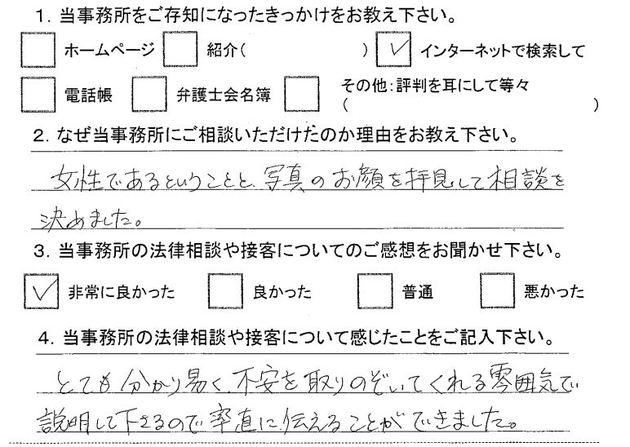 1. 当事務所をご存知になったきっかけをお教え下さい。
ホームページ 紹介( ) ✓ インターネットで検索して
電話帳 弁護士会名簿 その他:評判を耳にして等々
( )
2. なぜ当事務所にご相談いただけたのか理由をお教え下さい。
女性であるということと、写真のお顔を拝見して相談を
決めました。
3. 当事務所の法律相談や接客についてのご感想をお聞かせ下さい。
✓ 非常に良かった 良かった 普通 悪かった
4. 当事務所の法律相談や接客について感じたことをご記入下さい。
とても分かり易く、不安を取りのぞいてくれる雰囲気で
説明して下さるので率直に伝えることができました。